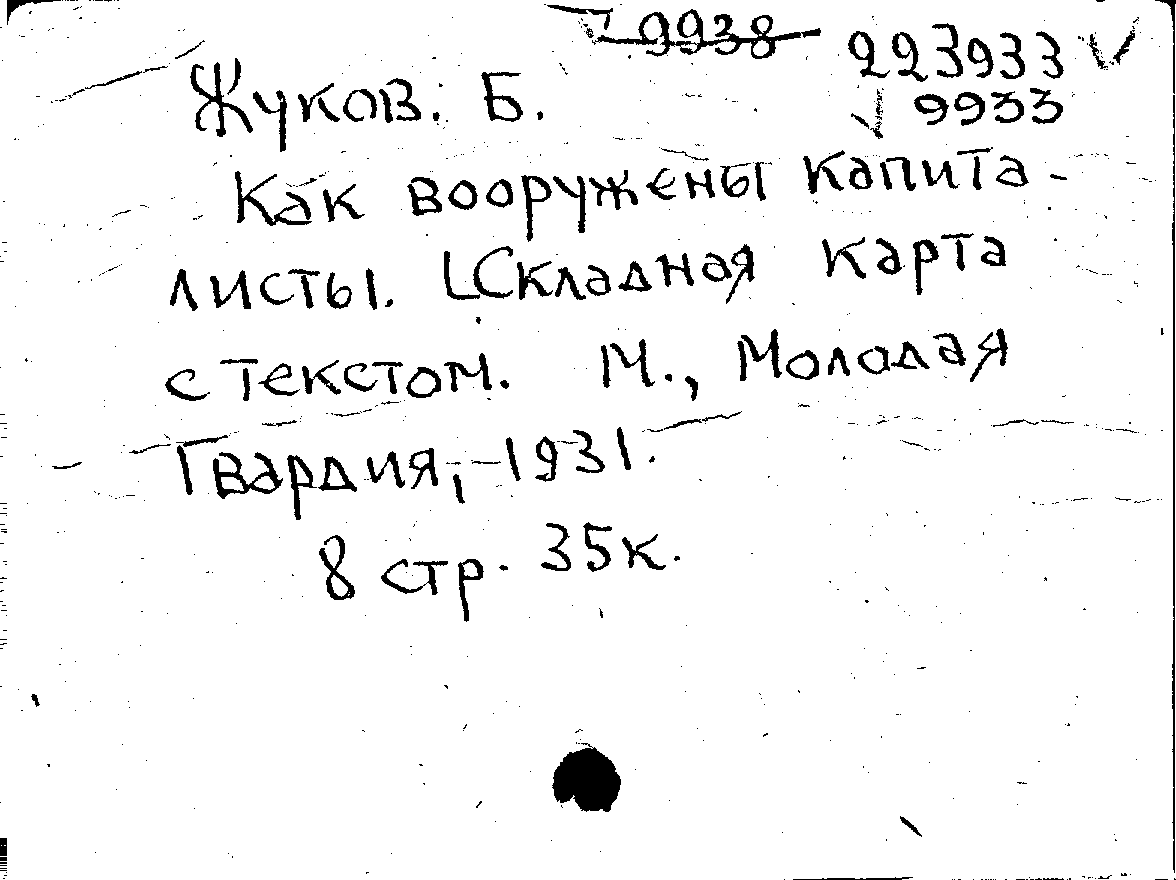 9938
223933
Жуков. Б.
9933
Как вооружены капита-
листы. [Складная карта
с текстом. М., Молодая
Гвардия, -1931.
8 стр. 35к.